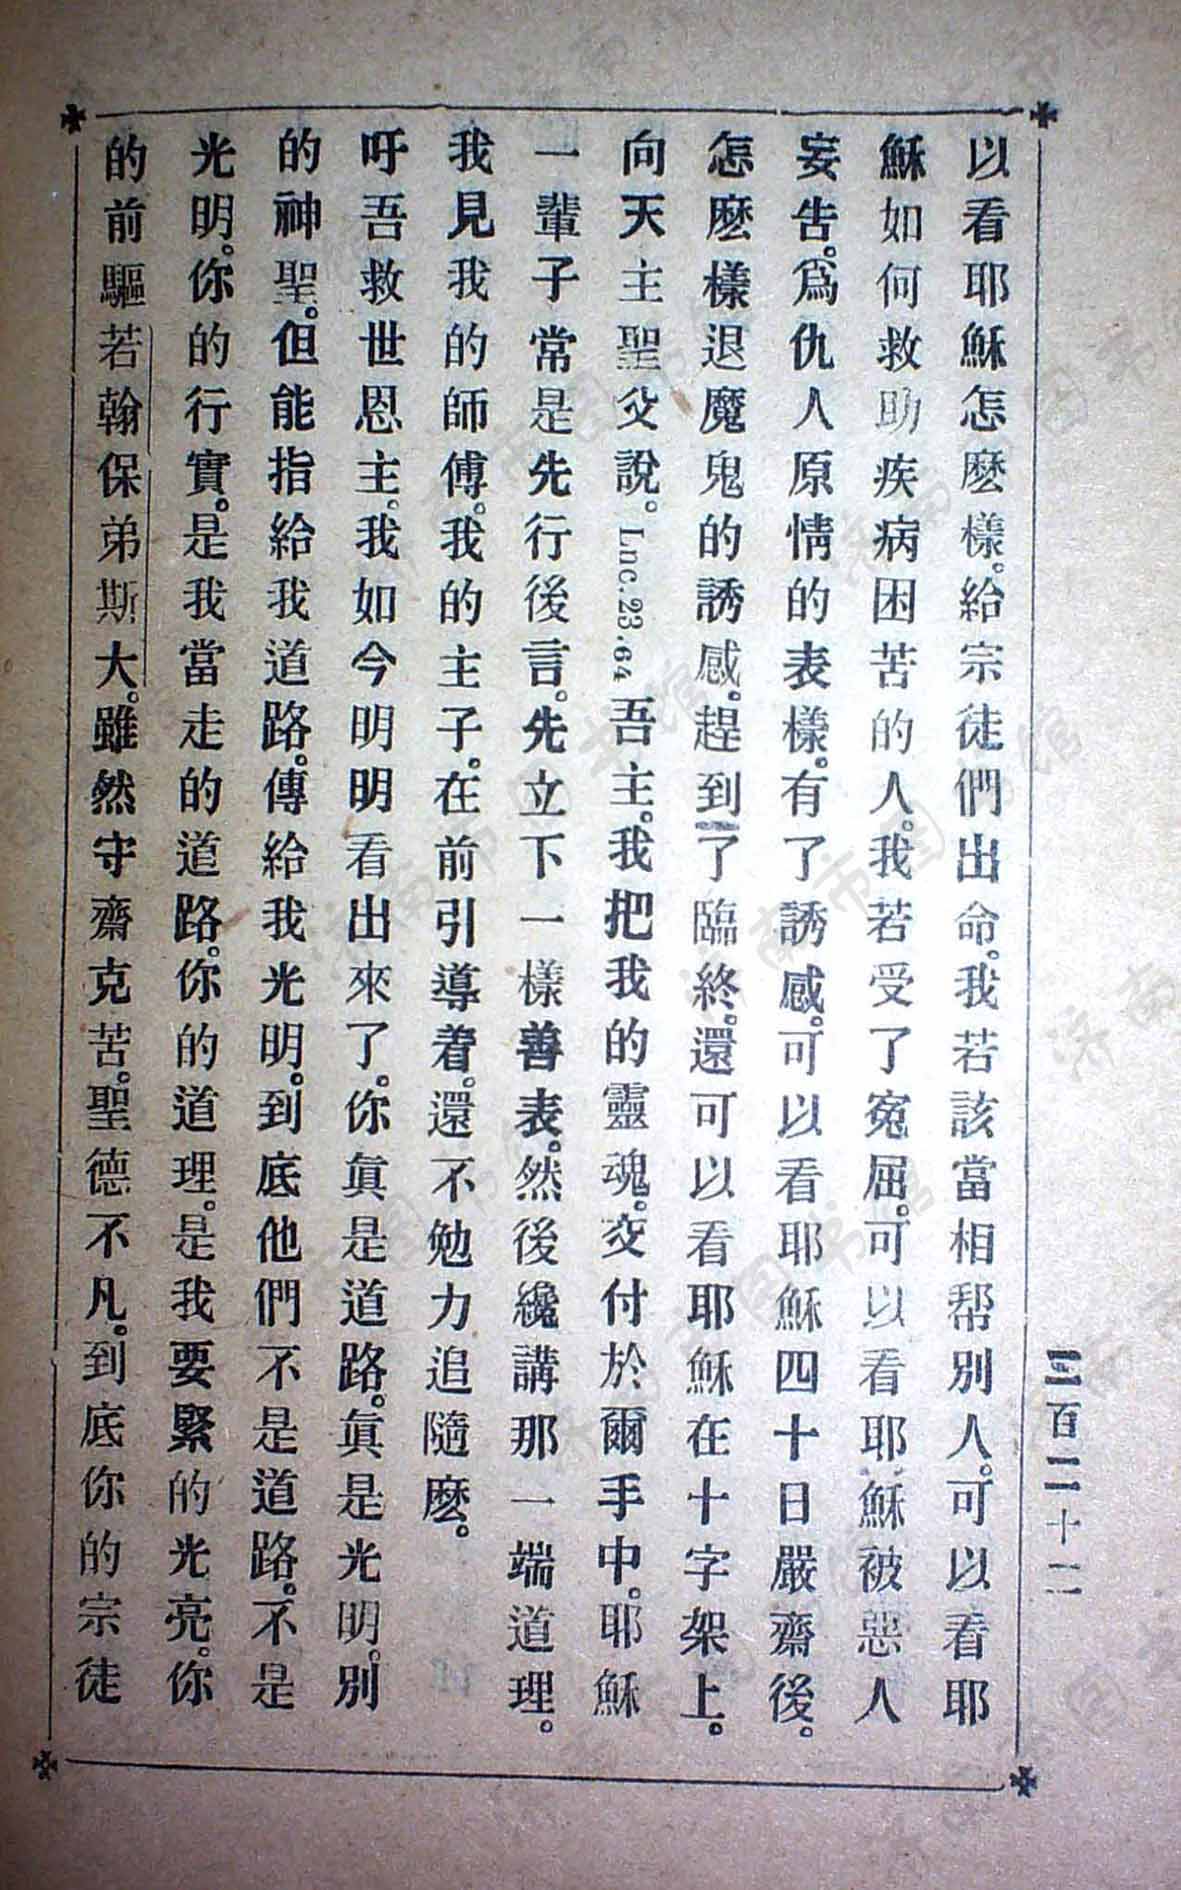 三百二十二
以看耶穌怎麽樣。給宗徒們出命。我若該當相帮別人。可以看耶
穌如何救助疾病困苦的人。我若受了寃屈。可以看耶穌被惡人
妄告。爲仇人原情的表樣。有了誘感。可以看耶穌四十日嚴齋後。
怎麽樣退魔鬼的誘感。趕到了臨終。還可以看耶穌在十字架上。
向天主聖父說。Lnc.23.64吾主。我把我的靈魂。交付於爾手中。耶穌
一輩子常是先行後言。先立下一樣善表。然後纔講那一端道理。
我見我的師傅。我的主子。在前引導着。還不勉力追隨麽。
吁吾救世恩主。我如今明明看出來了。你眞是道路。眞是光明。別
的神聖。但能指給我道路。傳給我光明。到底他們不是道路。不是
光明。你的行實。是我當走的道路。你的道理。是我要緊的光亮。你
的前驅若翰保弟斯大。雖然守齋克苦。聖德不凡。到底你的宗徒